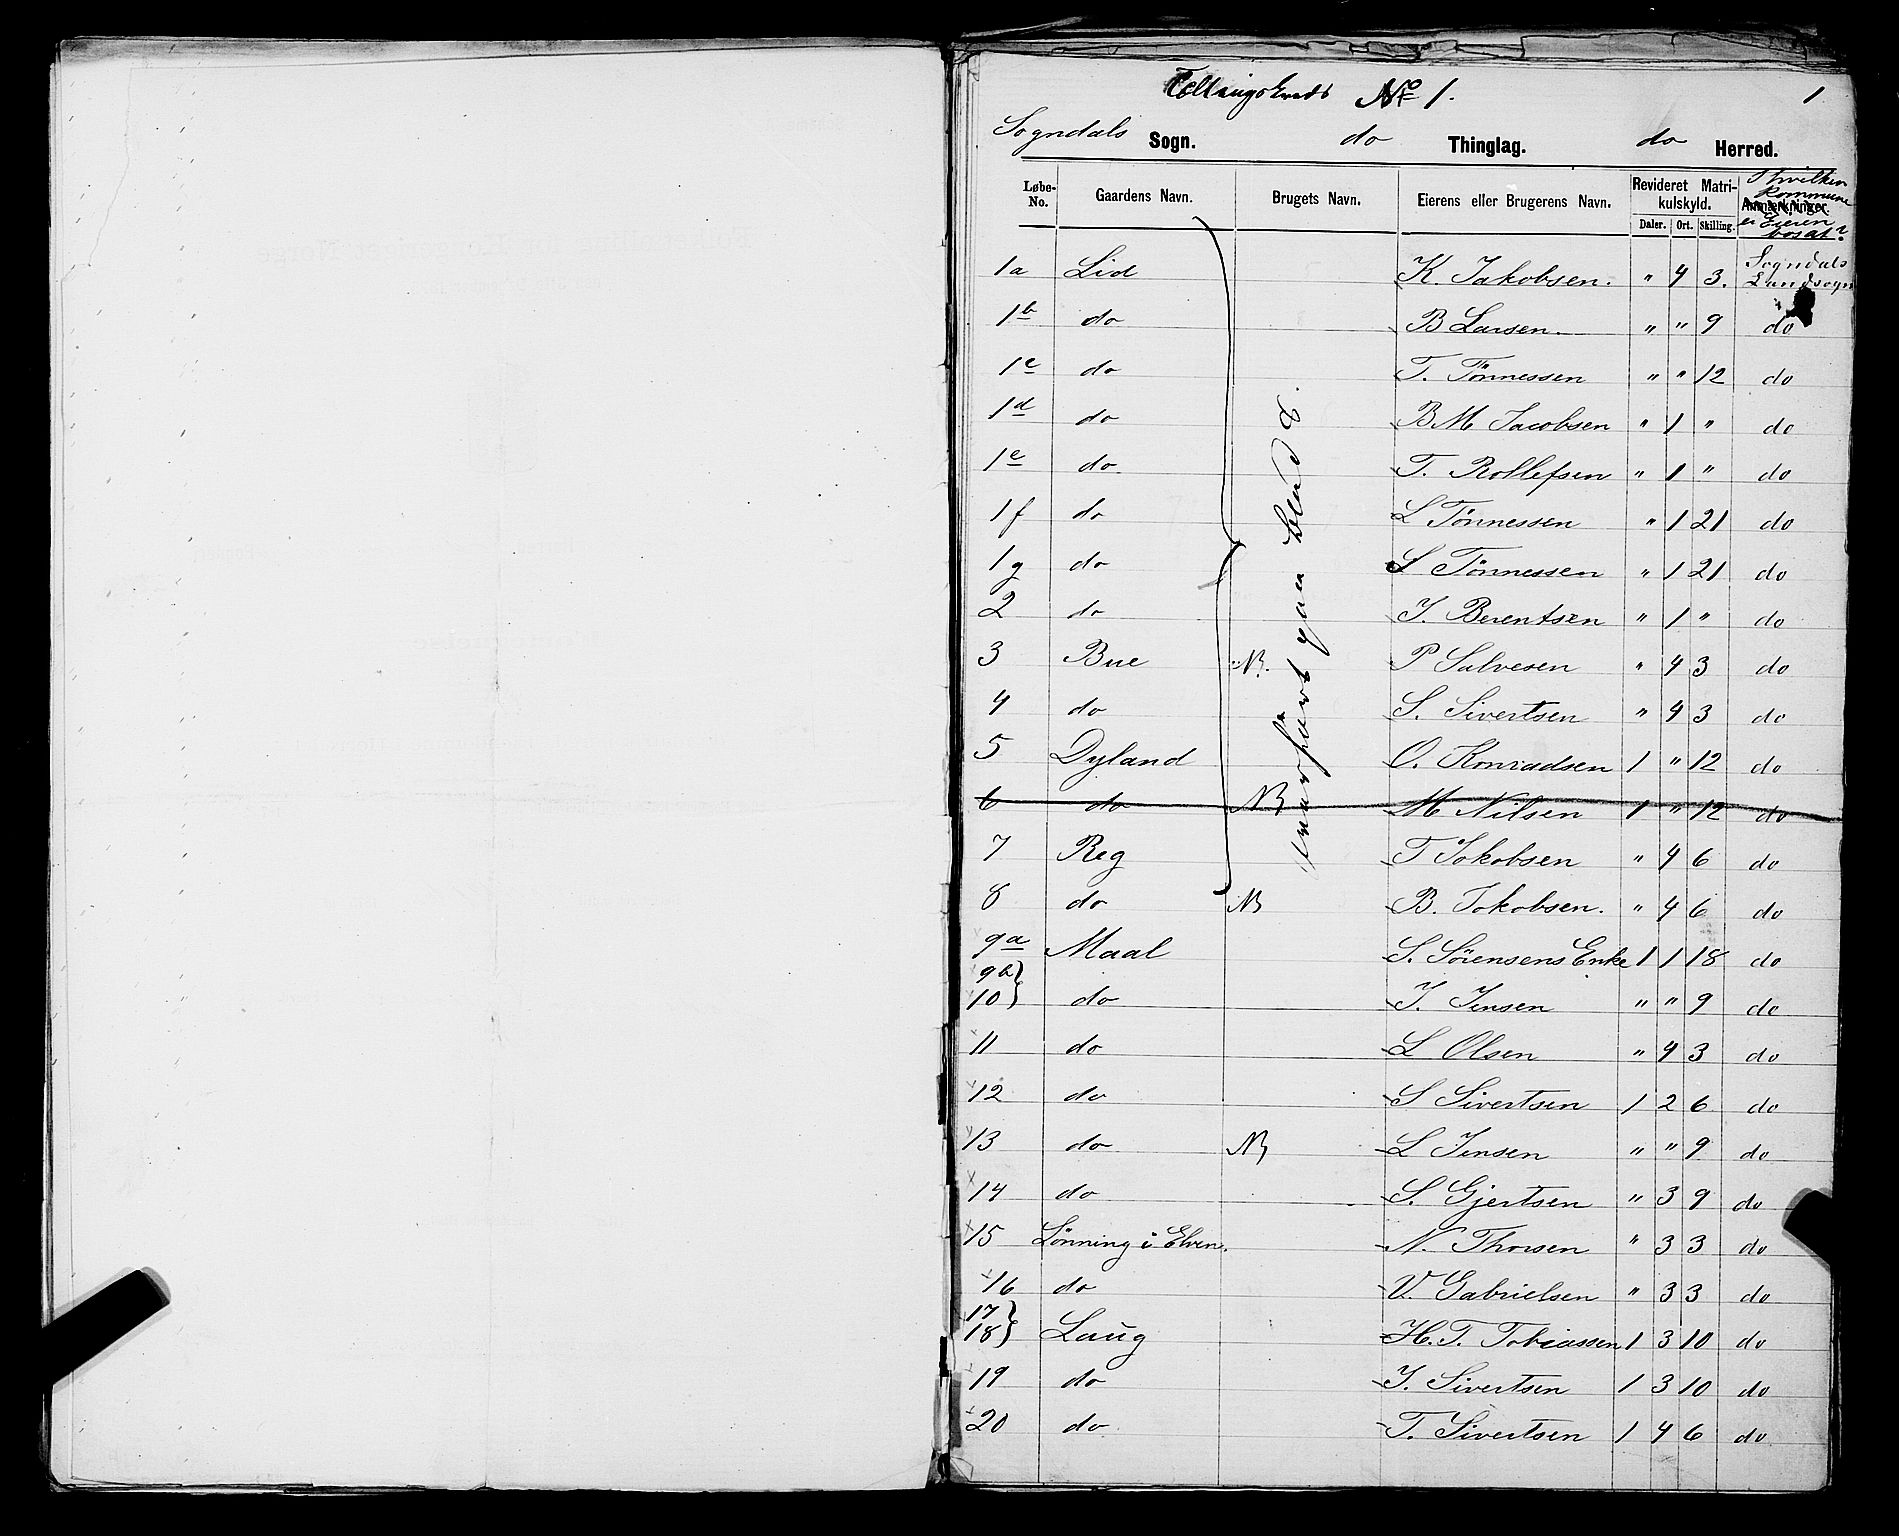 Tellingskreds No 1.
1
Sogndals Sogn. do Thinglag. do Herred.
Løbe-No. Gaardens Navn. Brugets Navn. Eierens eller Brugerens Navn. Revideret Matrikulskyld. Daler. Ort. Skilling. Anmærkninger. I hvilken Kommune er Eieren bosat?
1a Lid K. Jakobsen. " 4 3. Sogndals Landsogn
1b do B Larsen. " " 9 do
1c do T. Tönnessen " " 12 do
1d do B M Jacobsen " 1 " do
1e do. T. Rollefsen " 1 " do
1f do L Tönnessen " 1 21 do
1g do S Tönnessen " 1 21 do
2 do J. Berentsen " 1 " do
3 Bue NB. P Salvesen " 4 3 do
4 do S. Sivertsen " 4 3 do
5 Dyland O. Konradsen 1 " 12 do
6 do NB M Nilsen 1 " 12 do
7 Reg T Jokobsen " 4 6 do
8 do NB B. Jokobsen. " 4 6 do
9a Maal S. Sörensens Enke 1 1 18 do
9b}
10} do J. Jensen " " 9 do
11 do L Olsen " 4 3 do
12 do S Sivertsen 1 2 6 do
13 do NB L Jensen " " 9 do
14 do S. Gjertsen " 3 9 do
15 Lönning i Elven. N. Thorsen " 3 3 do
16 do V. Gabrielsen " 3 3 do
17}
18} Laug H. T. Tobiassen 1 3 10 do
19 do J. Sivertsen 1 3 10 do
20 do T. Sivertsen 1 4 6 do